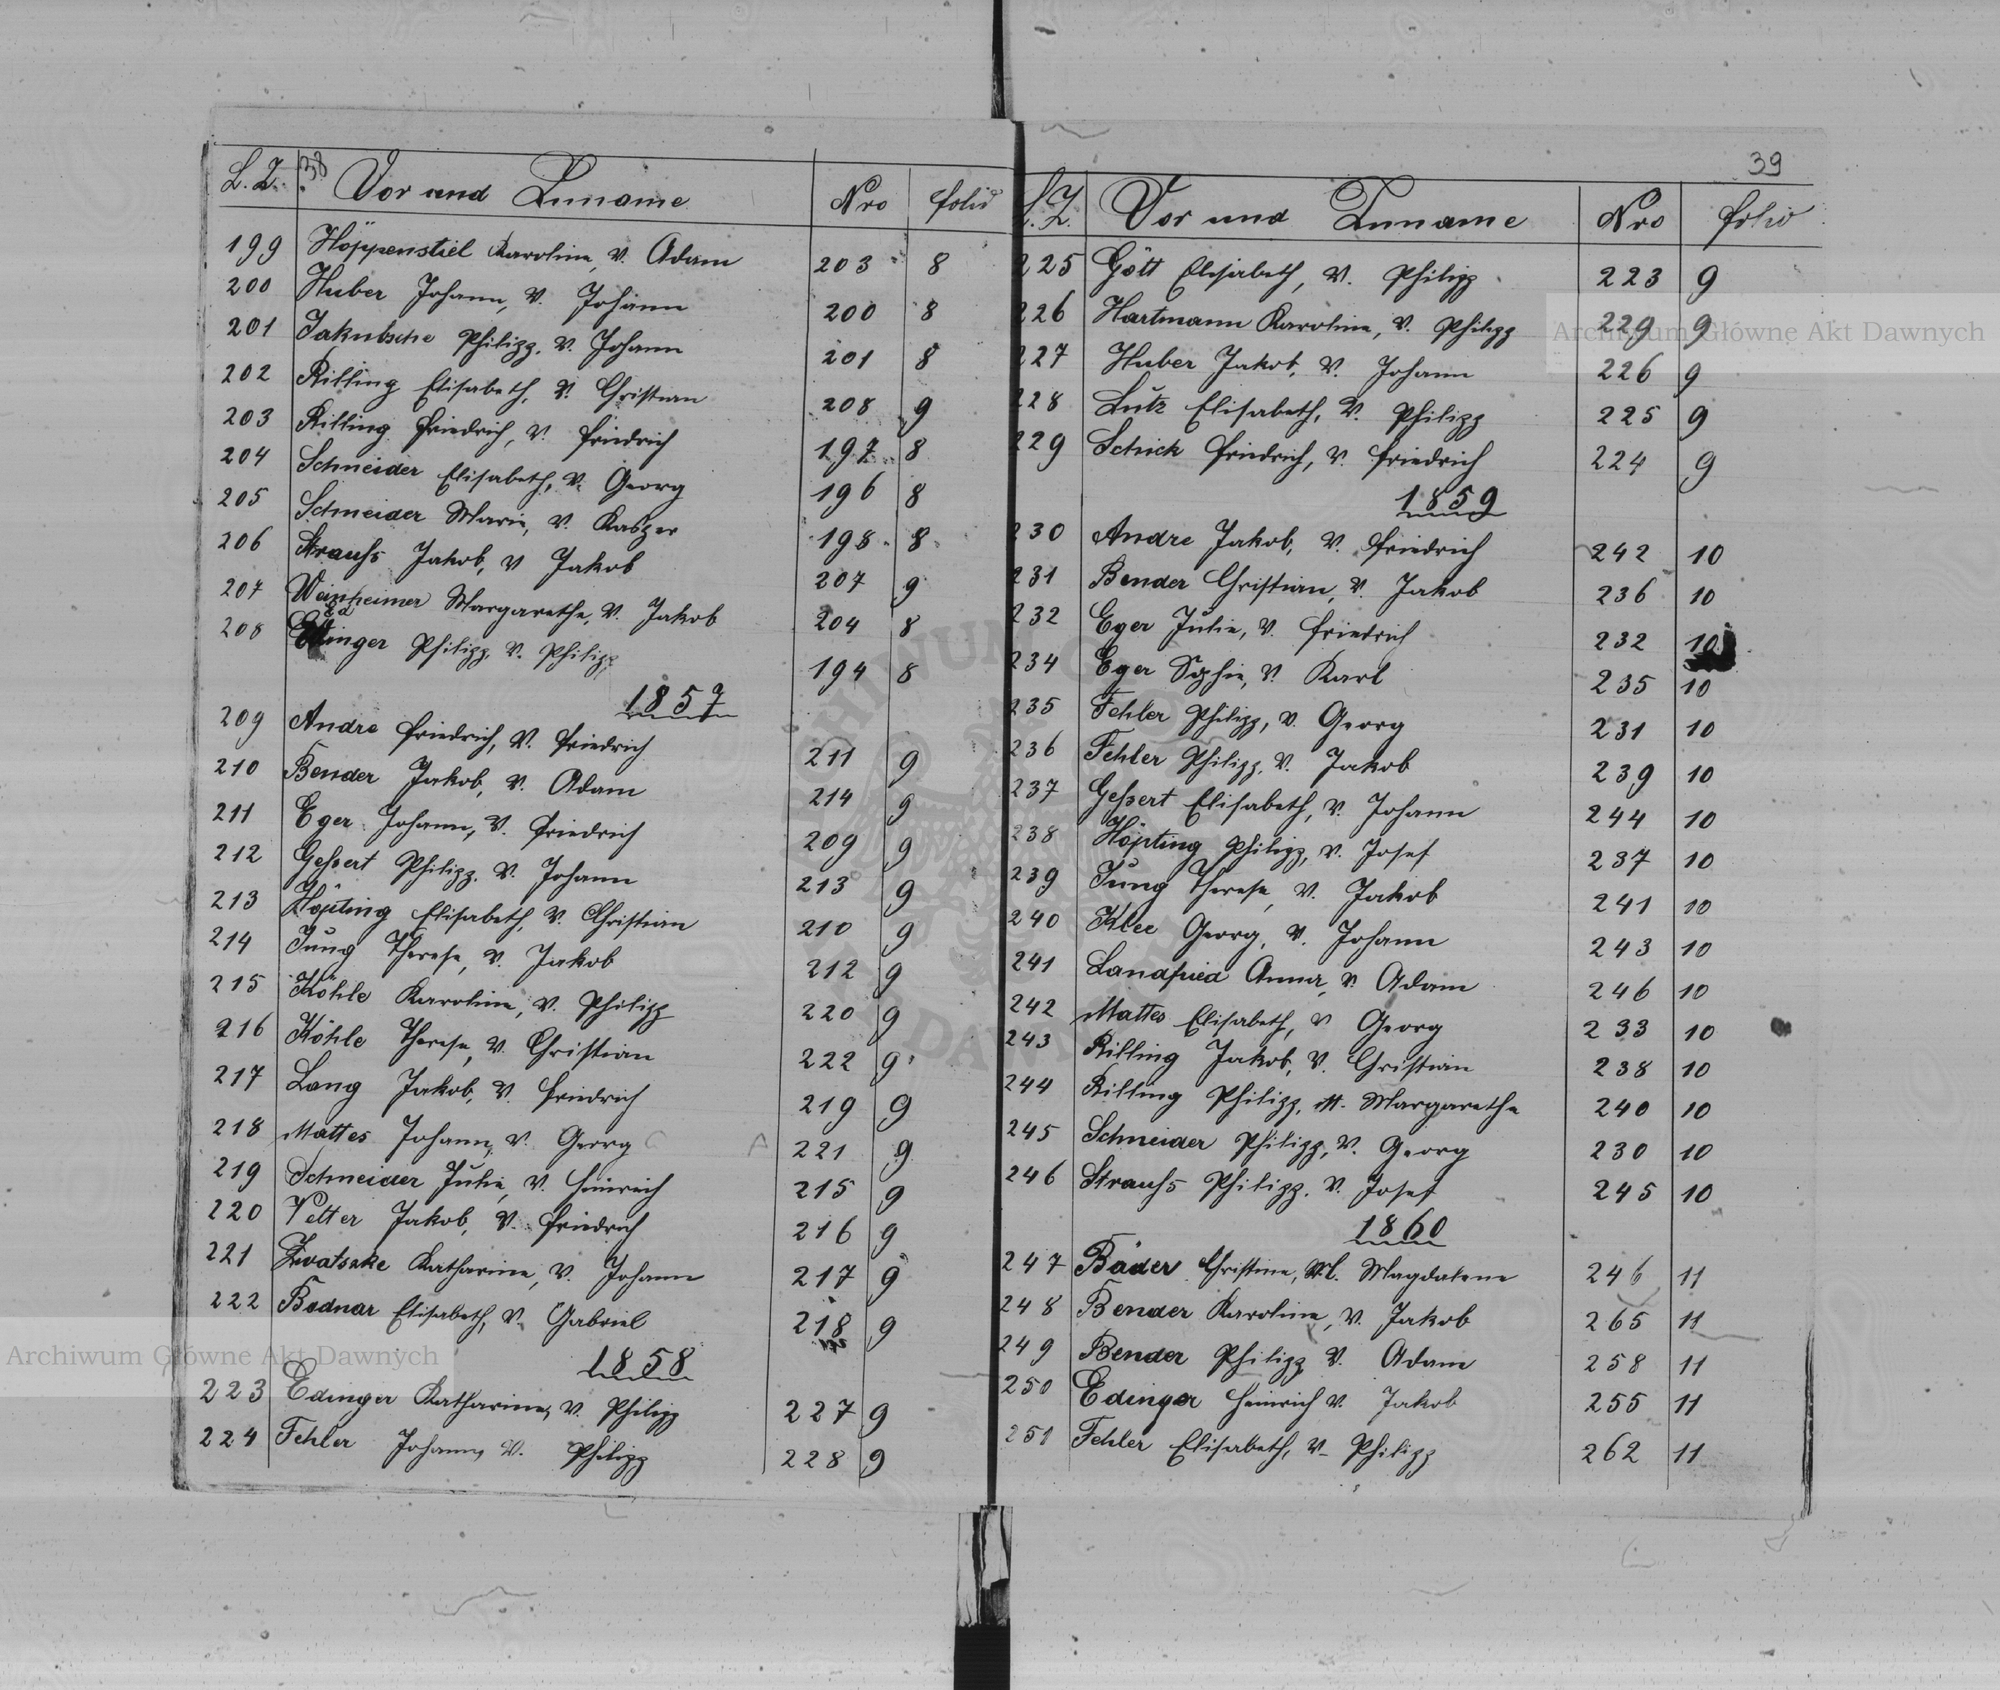 38
L. Z. Vor und Zuname Nro folio
199 Höppenstiel Karoline, V. Adam 203 8
200 Huber Johann, V. Johann 200 8
201 Jakubsche Philipp, V. Johann 201 8
202 Rilling Elisabeth, V. Christian 208 9
203 Rilling Friedrich, V. Friedrich 197 8
204 Schneider Elisabeth, V. Georg 196 8
205 Schneider Marie, V. Kasper 198 8
206 Strauhs Jakob, V Jakob 207 9
207 Weinheimer Margarethe, V. Jakob 204 8
208 Edinger Philipp, V. Philipp 194 8
1857
209 Andre Friedrich, V. Friedrich 211 9
210 Bender Jakob, V. Adam 214 9
211 Eger Johann, V. Friedrich 209 9
212 Gehsert Philipp, V. Johann 213 9
213 Höpting Elisabeth, V. Christian 210 9
214 Jung Therese, V. Jakob 212 9
215 Köhle Karoline, V. Philipp 220 9
216 Köhle Therese, V. Christian 222 9
217 Lang Jakob, V. Friedrich 219 9
218 Mattes Johann, V. Georg 221 9
219 Schneider Julie, V. Heinreich 215 9
220 Vetter Jakob, V. Friedrich 216 9
221 Zwatschke Katharine, V. Johann 217 9
222 Bodnar Elisabeth, V. Gabriel 218 9
1858
223 Edinger Katharine, V. Philipp 227 9
224 Fehler Johann, V. Philipp 228 9
39
L. Z. Vor und Zuname Nro folio
225 Gött Elisabeth, V. Philipp 223 9
226 Hartmann Karoline, V. Philipp 229 9
227 Huber Jakob, V. Johann 226 9
228 Lutz Elisabeth, V. Philipp 225 9
229 Schick Friedrich, V. Friedrich 224 9
1859
230 Andre Jakob, V. Friedrich 242 10
231 Bender Christian, V. Jakob 236 10
232 Eger Julie, V. Friedrich 232 10
234 Eger Sophie, V. Karl 235 10
235 Fehler Philipp, V. Georg 231 10
236 Fehler Philipp, V. Jakob 239 10
237 Gehsert Elisabeth, V. Johann 244 10
238 Höpting Philipp, V. Josef 237 10
239 Jung Therese, V. Jakob 241 10
240 Klee Georg, V. Johann 243 10
241 Landfried Anna, V. Adam 246 10
242 Mattes Elisabeth, V Georg 233 10
243 Rilling Jakob, V. Christian 238 10
244 Rilling Philipp, M. Margarethe 240 10
245 Schneider Philipp, V. Georg 230 10
246 Strauhs Philipp, V. Josef 245 10
1860
247 Bäder Christine, M. Magdalene 246 11
248 Bender Karoline, V. Jakob 265 11
249 Bender Philipp V. Adam 258 11
250 Edinger Heinrich V. Jakob 255 11
251 Fehler Elisabeth, V. Philipp 262 11
Archiwum Główne Akt Dawnych
Archiwum Główne Akt Dawnych